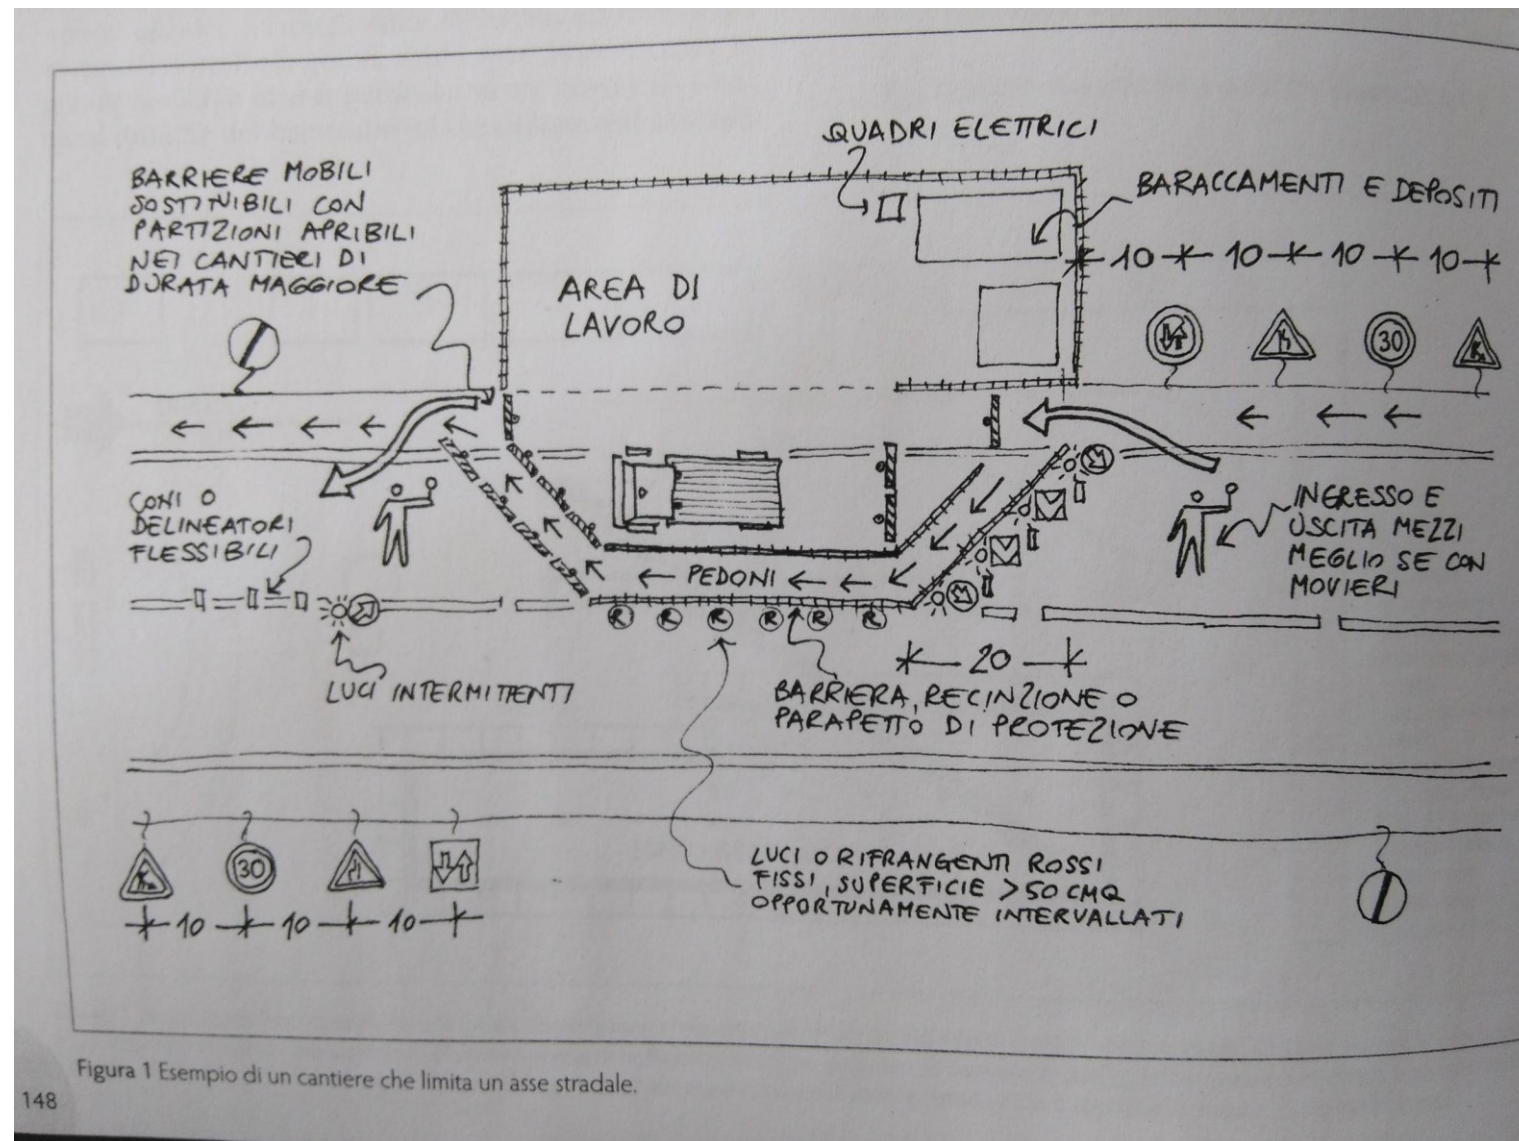 QUADRI ELETTRICI
BARRIERE MOBILI
SOSTITUIBILI CON
PARTIZIONI APRIBILI
NEI CANTIERI DI
DURATA MAGGIORE
BARACCAMENTI E DEPOSITI
10 10 10 10
AREA DI
LAVORO
30
CONI O
DELINEATORI
FLESSIBILI
INGRESSO E
USCITA MEZZI
MEGLIO SE CON
MOVIERI
PEDONI
R R R R R R
20
LUCI INTERMITTENTI
BARRIERA, RECINZIONE O
PARAPETTO DI PROTEZIONE
30
10 10 10
LUCI O RIFRANGENTI ROSSI
FISSI, SUPERFICIE > 50 CMQ
OPPORTUNAMENTE INTERVALLATI
Figura 1 Esempio di un cantiere che limita un asse stradale.
148